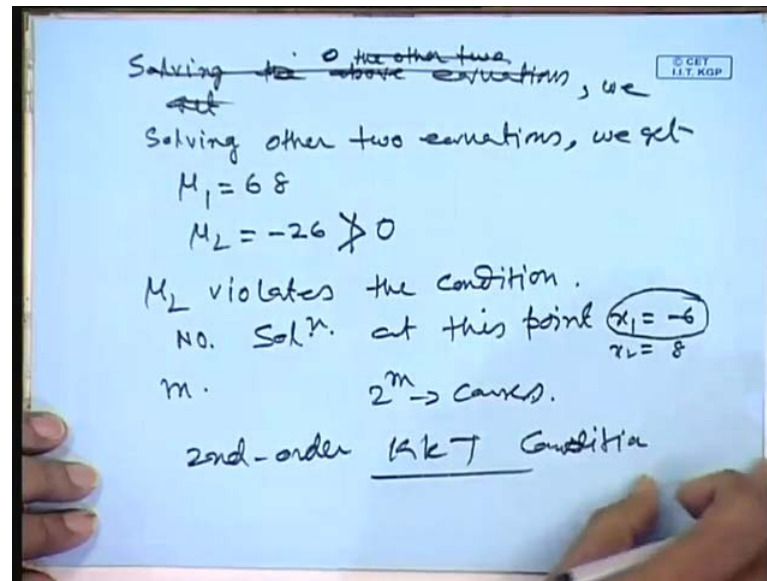 Solving the above equations, we
0 the other two
get
© CET
I.I.T. KGP
Solving other two equations, we get
μ₁ = 68
μ₂ = -26 ≯ 0
μ₂ violates the condition.
NO. Solⁿ. at this point x₁ = -6
x₂ = 8
m. 2^m → cases.
2nd-order KKT Condition